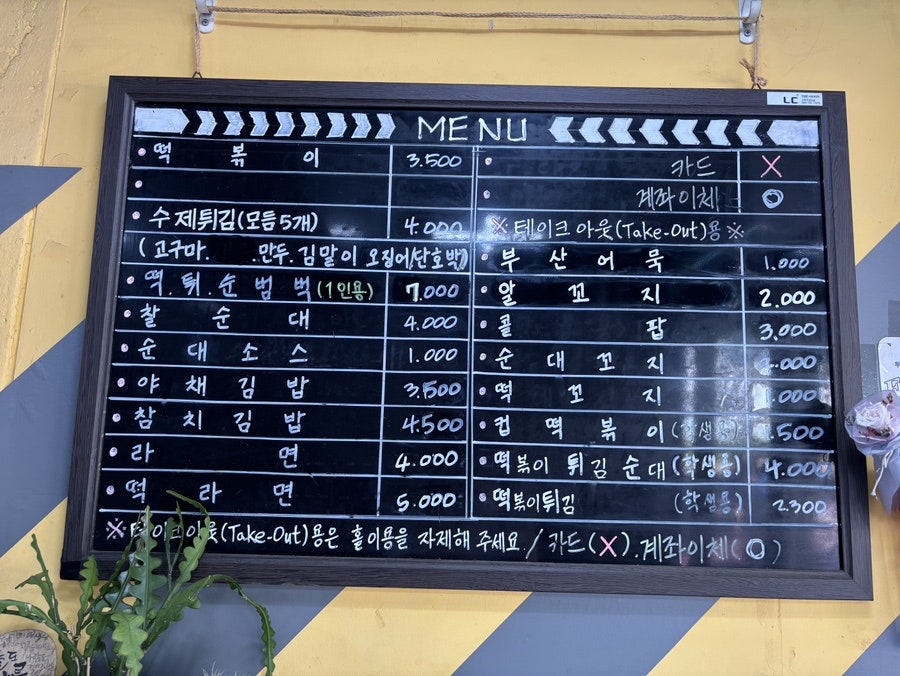 LC
MENU
떡 볶 이 3.500
수제튀김(모듬5개) 4.000
(고구마. .만두.김말이 오징어/단호박)
떡.튀.순범벅(1인용) 7.000
찰 순 대 4.000
순 대 소 스 1.000
야 채 김 밥 3.500
참 치 김 밥 4.500
라 면 4.000
떡 라 면 5.000
카드 X
계좌이체 O
※테이크아웃(Take-Out)용※
부 산 어 묵 1.000
알 꼬 지 2.000
콜 팝 3.000
순 대 꼬 지
떡 꼬 지 1.000
컵 떡 볶 이(학생용)
떡볶이 튀김순대(학생용) 4.000
떡볶이튀김 (학생용) 2.300
※테이크아웃(Take-Out)용은 홀이용을 자제해 주세요./카드(X).계좌이체(O)